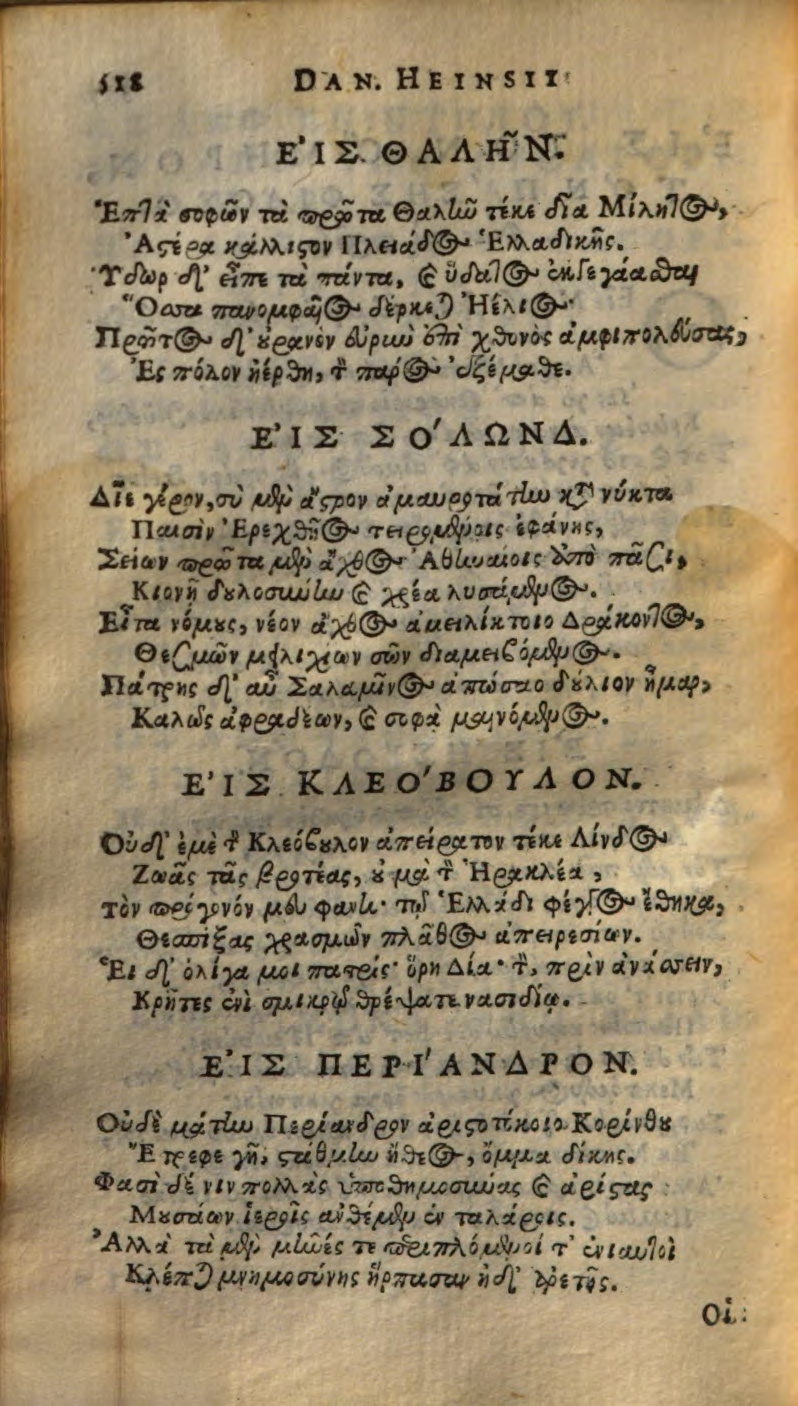 518 DAN. HEINSII
ΕἸΣ ΘΑΛΗ͂Ν.
Ἑπτὰ σοφῶν τὰ πρῶτα Θαλῆν τέκε δῖα Μίλητος,
Ἀστέρα κάλλιστον Πλειάδος Ἑλλαδικῆς.
Ὕδωρ δ' εἶπε τὰ πάντα, καὶ ὕδατος ἐκγεγάασθαι
Ὅσσα πανομφαῖος δέρκεται Ἠέλιος·
Πρῶτος δ' οὐρανὸν εὐρὺν ἐπὶ χθονὸς ἀμφιπολεύσας,
Ἐς πόλον ἠέρθη, τὸν πάρος ἐξέμαθε.
ΕἸΣ ΣΌΛΩΝΑ.
Δῖε γέρον, σὺ μὲν ἄστρον ἀμαυροτάτην κατὰ νύκτα
Παισὶν Ἐρεχθῆος τειρομένοις ἐφάνης,
Σείων πρῶτα μὲν ἄχθος Ἀθηναίοις ἀπὸ πᾶσι,
Κοινῇ δουλοσύνην καὶ χρέα λυσάμενος.
Εἶτα νόμους, νέον ἄχθος ἀμειλίκτοιο Δράκοντος,
Θεσμῶν μειλιχίων σῶν διαμειβόμενος.
Πάτρης δ' αὖ Σαλαμῖνος ἀπώσαο δούλιον ἦμαρ,
Καλῶς ἀφραδέων, καὶ σοφὰ μαινόμενος.
ΕἸΣ ΚΛΕΌΒΟΥΛΟΝ.
Οὐδ' ἐμὲ τὸν Κλεόβουλον ἀπείρατον τέκε Λίνδος
Ζωᾶς τᾶς βροτέας, οὐ μὰ τὸν Ἡρακλέα,
Τὸν πρόγονόν μευ φανί· τῇ Ἑλλάδι φέγγος ἔθηκα,
Θεσπίξας χρασμῶν πλᾶθος ἀπειρεσίων.
Εἰ δ' ὀλίγα μοι πατρίς· ὅρη Δία· τὸν, πρὶν ἀνάσσειν,
Κρῆτες ἐνὶ σμικρῷ θρέψατε νασιδίῳ.
ΕἸΣ ΠΕΡΊΑΝΔΡΟΝ.
Οὐδὲ μάτην Περίανδρον ἀριστοτόκοιο Κορίνθου
Ἔτρεφε γῆ, στάθμην ἤθεος, ὄμμα δίκης.
Φασὶ δέ νιν πολλὰς ὑποθημοσύνας καὶ ἀρίστας
Μουσάων ἱεροῖς ἀνθέμεν ἐν ταλάροις.
Ἀλλὰ τὰ μὲν μῆνές τε περιπλόμενοί τ' ἐνιαυτοὶ
Κλέπται μνημοσύνης ἥρπασαν ἠδ' ἀρετῆς.
Οἱ